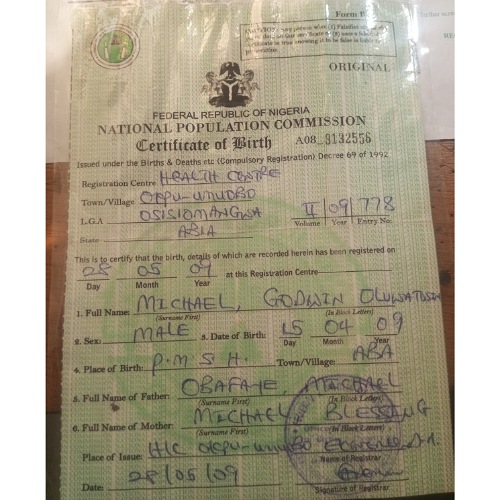 Form B
ORIGINAL
FEDERAL REPUBLIC OF NIGERIA
NATIONAL POPULATION COMMISSION
Certificate of Birth A08 9132556
Issued under the Births & Deaths etc (Compulsory Registration) Decree 69 of 1992
Registration Centre HEALTH CENTRE
Town/Village OKPU-UMUOBO
L.G.A OSISIOMANGWA II 09 778
Volume Year Entry No:
State ABIA
This is to certify that the birth, details of which are recorded herein has been registered on
28 05 09 at this Registration Centre
Day Month Year
1. Full Name: MICHAEL, GODWIN
(Surname First) (In Block Letters)
2. Sex: MALE 3. Date of Birth: 15 04 09
Day Month Year
4. Place of Birth: P.M.S.H. Town/Village: ABA
5. Full Name of Father: OBAFAYE, MICHAEL
(Surname First) (In Block Letters)
6. Full Name of Mother: MICHAEL BLESSING
(Surname First) (In Block Letters)
Place of Issue: H/C OKPU-UMUOBO
Name of Registrar
Date: 28/05/09
Signature of Registrar